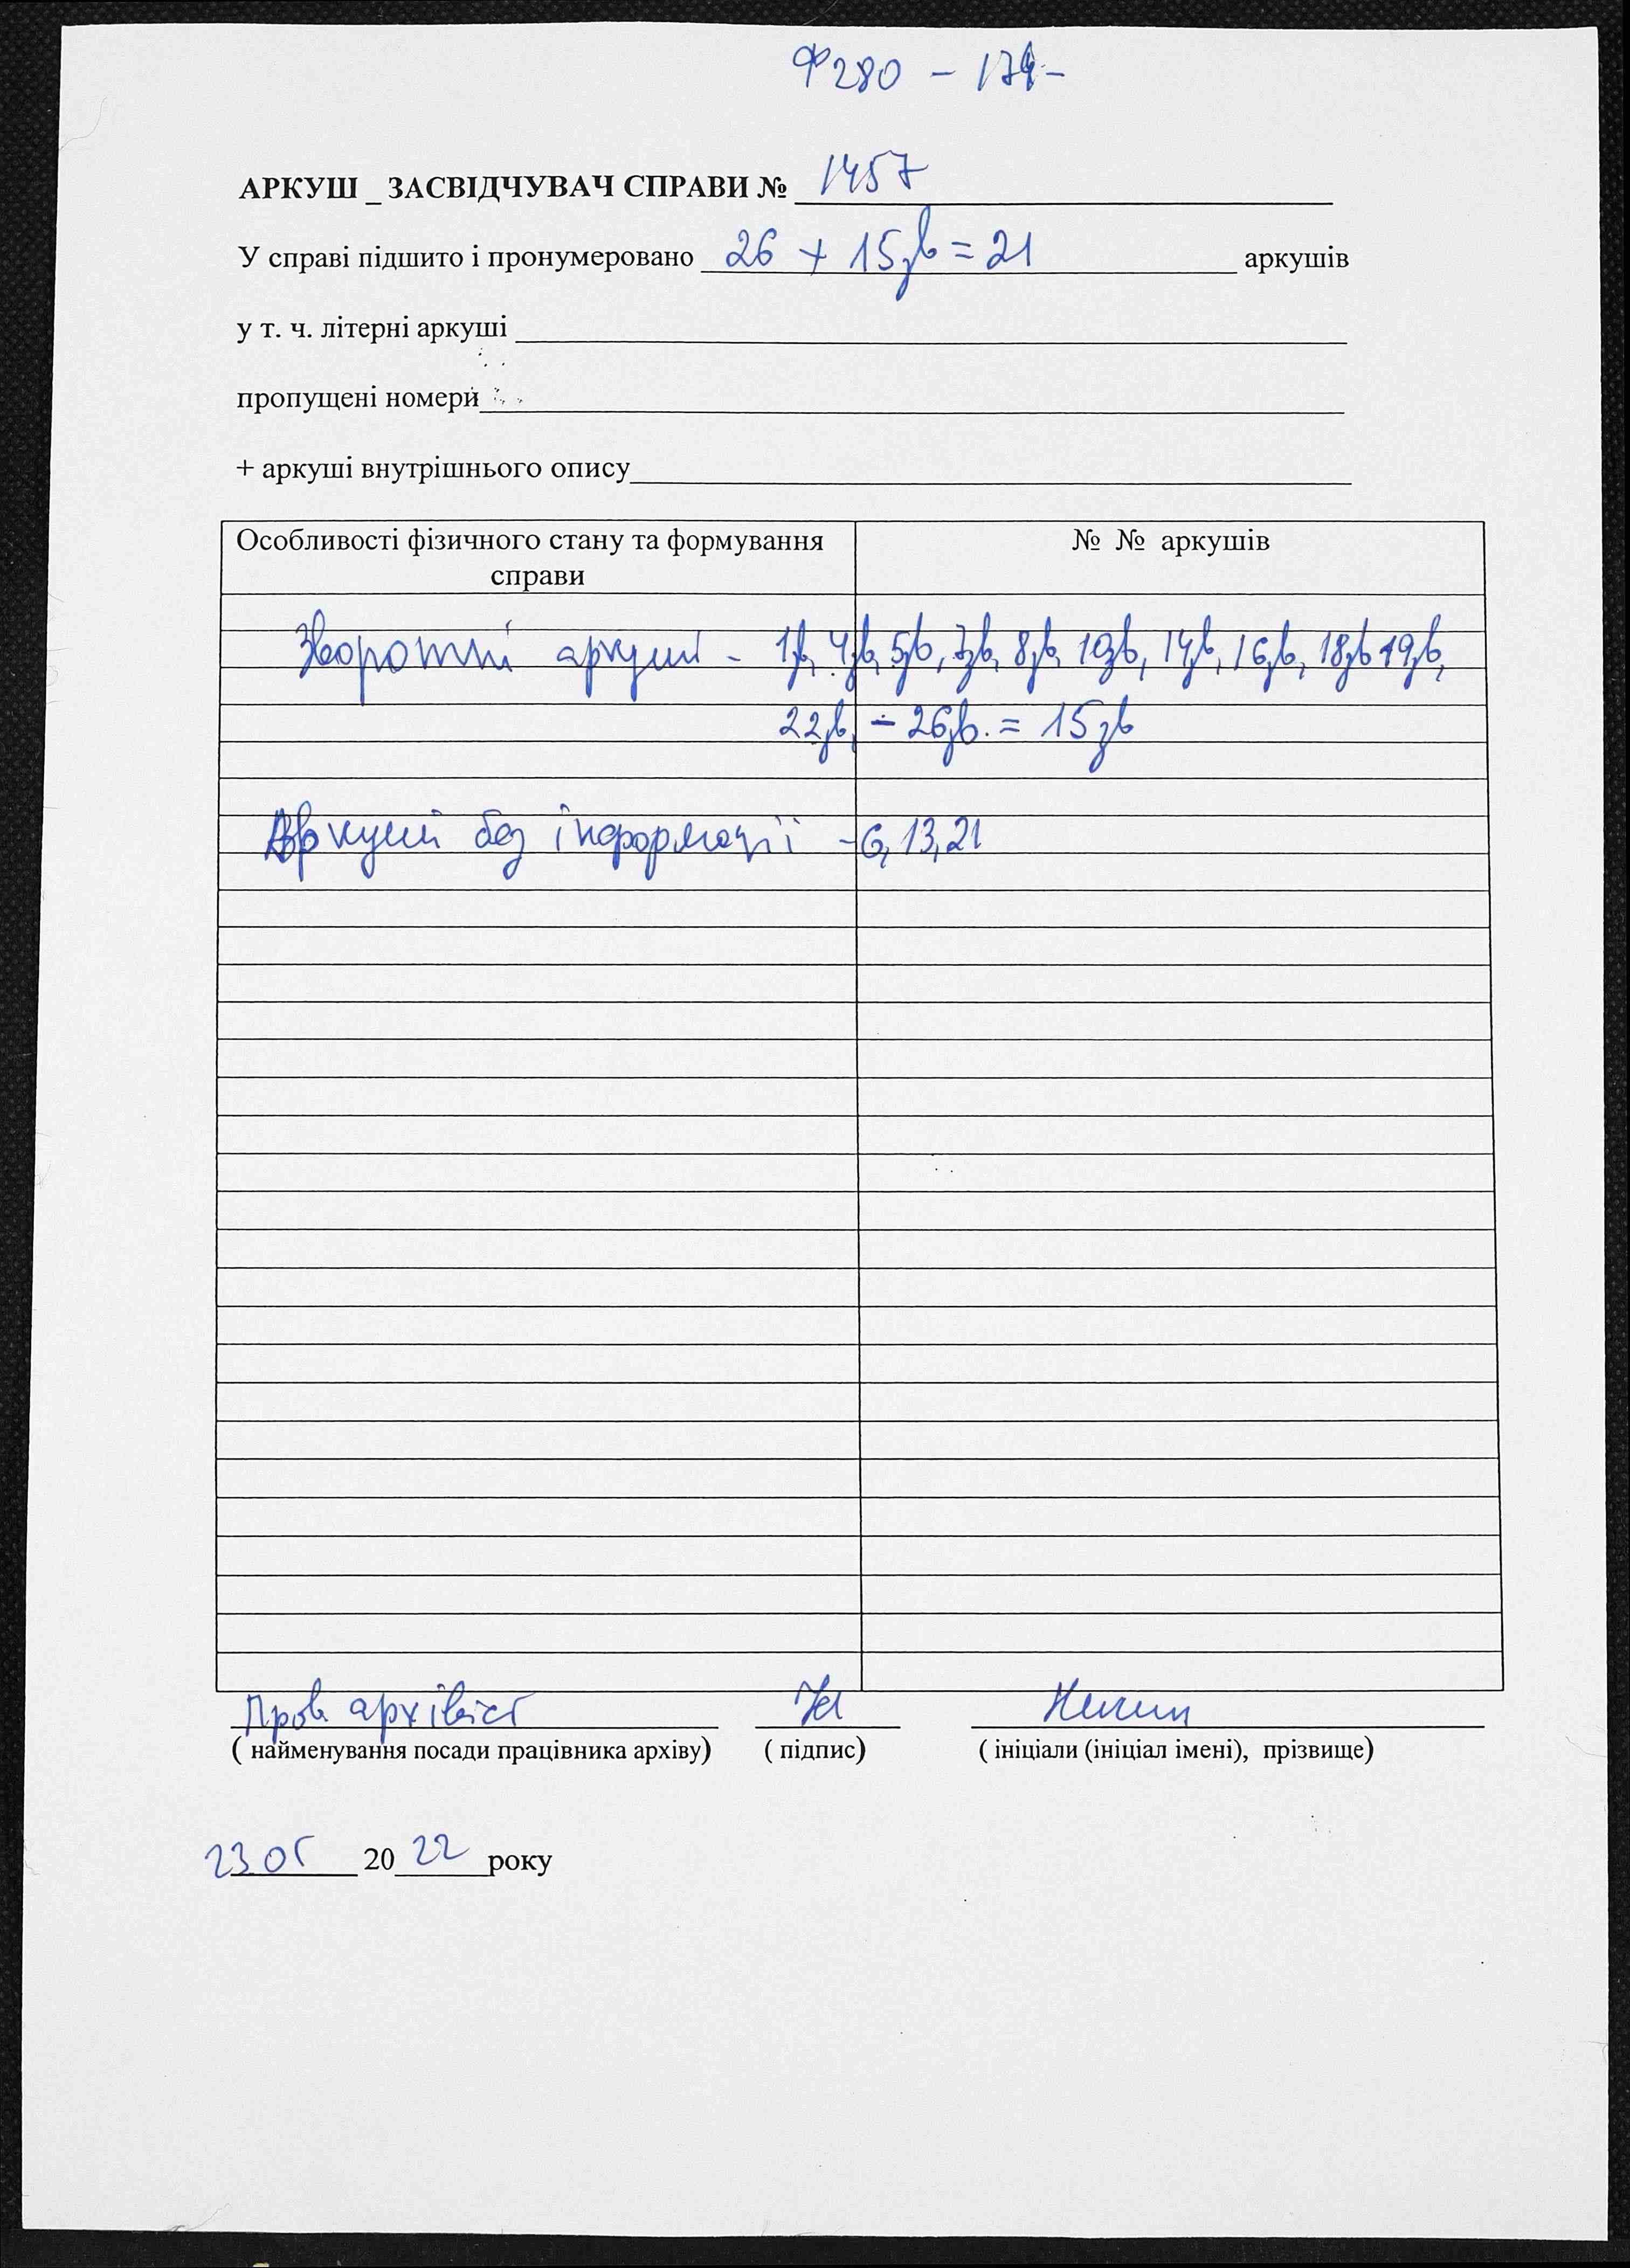 Ф280 - 174-
АРКУШ _ ЗАСВІДЧУВАЧ СПРАВИ № 1457
У справі підшито і пронумеровано 26 + 15зв = 21 аркушів
у т. ч. літерні аркуші
пропущені номери
+ аркуші внутрішнього опису
Особливості фізичного стану та формування справи № № аркушів
Зворотні аркуші - 1зв, 4зв, 5зв, 7зв, 8зв, 10зв, 14зв, 16зв, 18зв 19зв,
22зв, - 26зв. = 15зв
Аркуші без інформації - 6, 13, 21
Пров архівіст
( найменування посади працівника архіву) ( підпис) ( ініціали (ініціал імені), прізвище)
23 05 2022 року